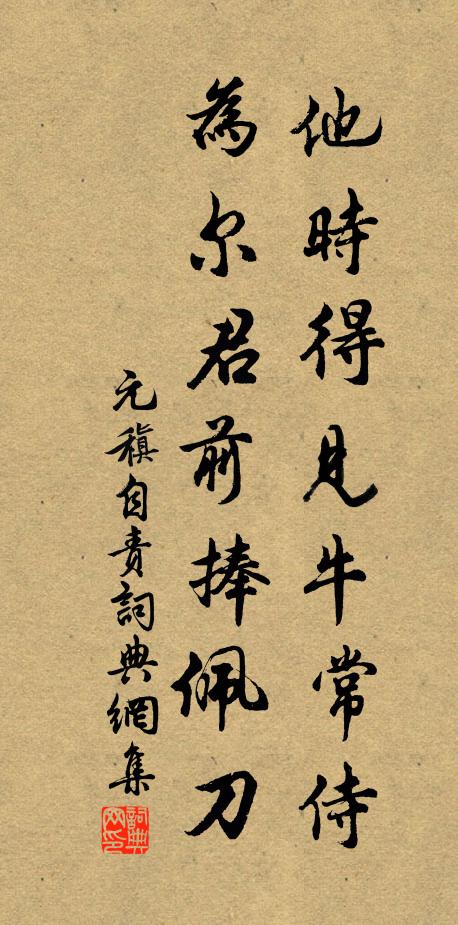 他時得見牛常侍
為尔君前捧佩刀
元稹自責詞典網集
詞典网印